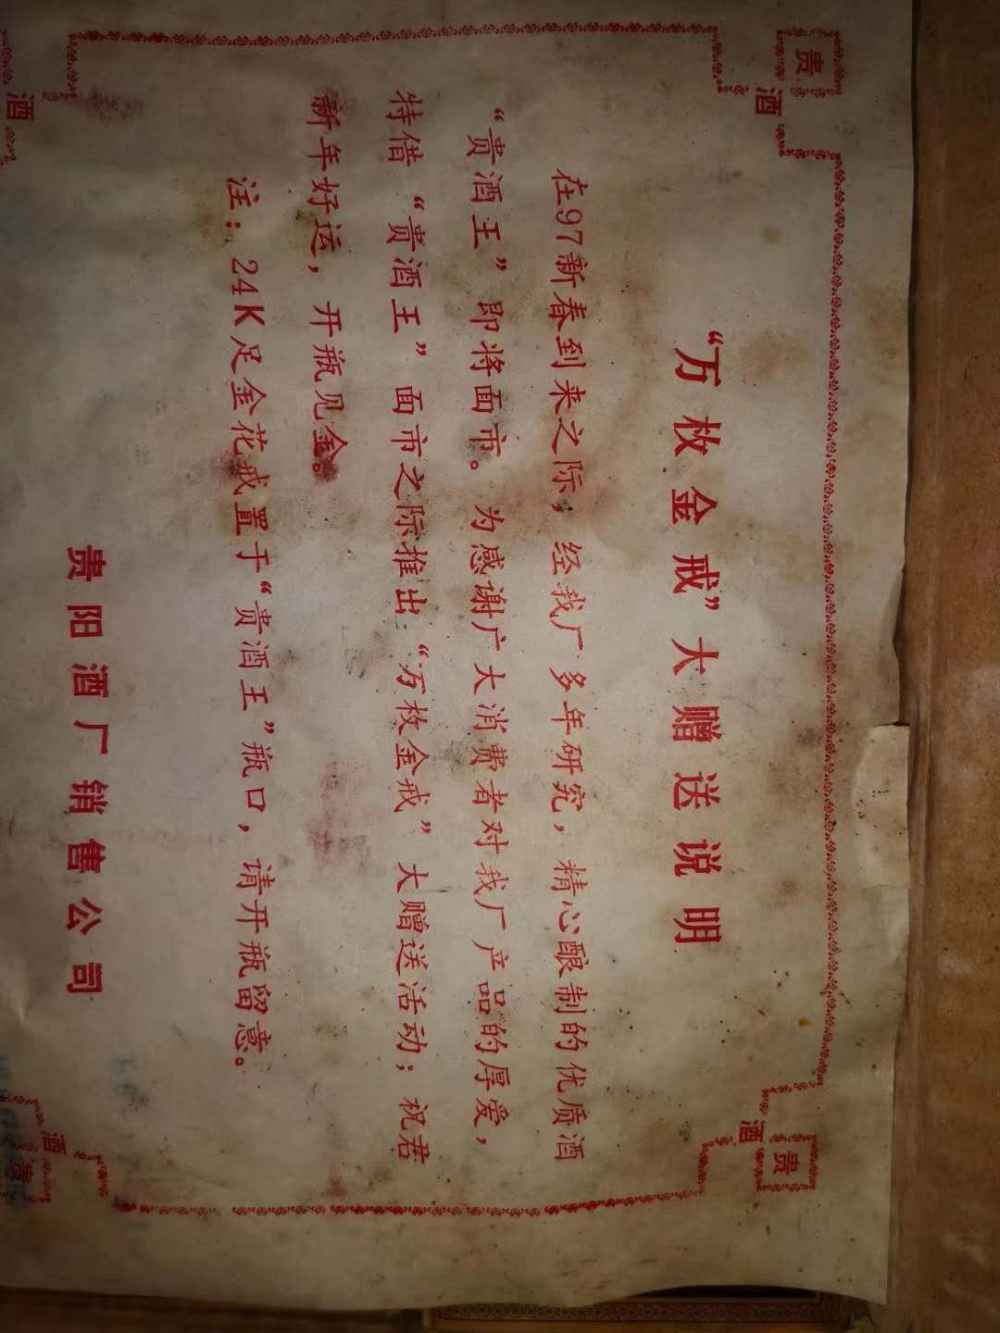 贵
酒
酒
“万枚金戒”大赠送说明
在97新春到来之际，经我厂多年研究，精心酿制的优质酒
“贵酒王”即将面市。为感谢广大消费者对我厂产品的厚爱，
特借“贵酒王”面市之际推出“万枚金戒”大赠送活动；祝君
新年好运，开瓶见金。
注：24K足金花戒置于“贵酒王”瓶口，请开瓶留意。
贵阳酒厂销售公司
贵
酒
酒
贵